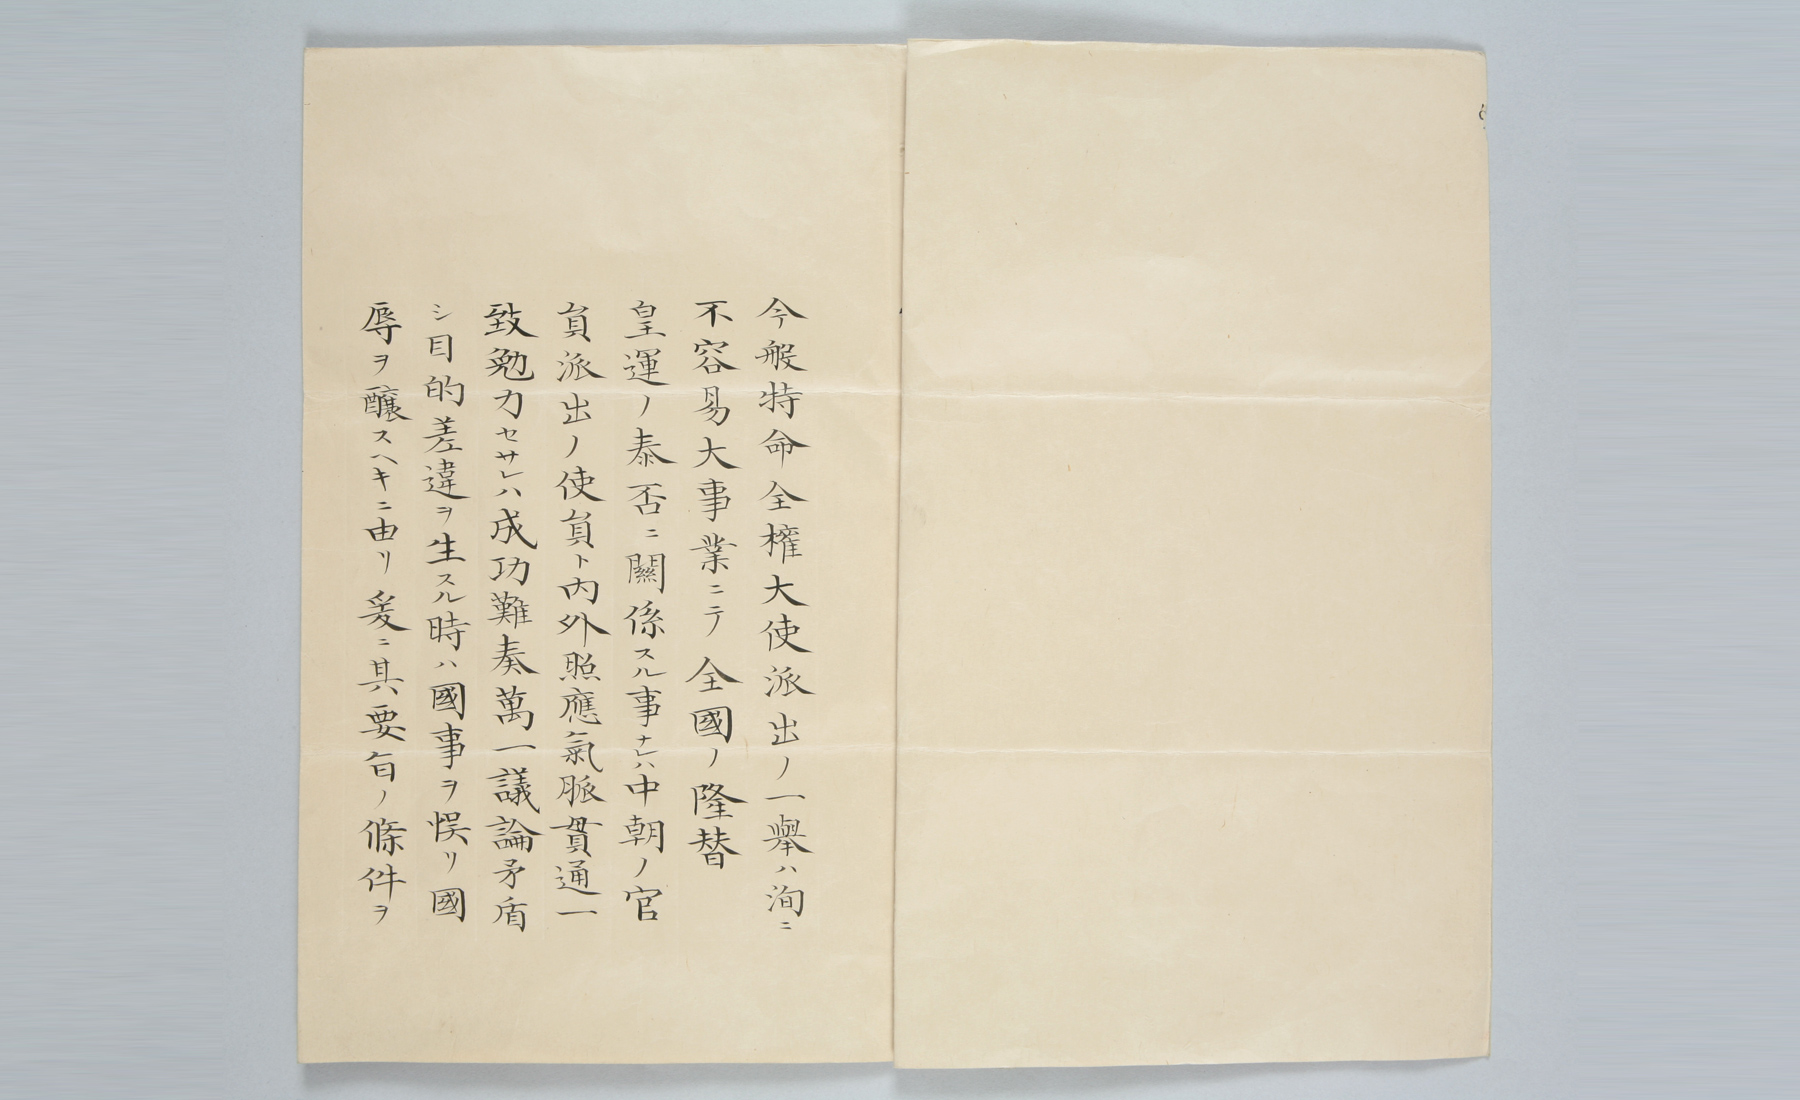 今般特命全權大使派出ノ一擧ハ洵ニ
不容易大事業ニテ全國ノ隆替
皇運ノ泰否ニ關係スル事ナレハ中朝ノ官
員派出ノ使員ト内外照應氣脈貫通一
致勉力セサレハ成功難奏萬一議論矛盾
シ目的差違ヲ生スル時ハ國事ヲ悞リ國
辱ヲ釀スヘキニ由リ爰ニ其要旨ノ條件ヲ